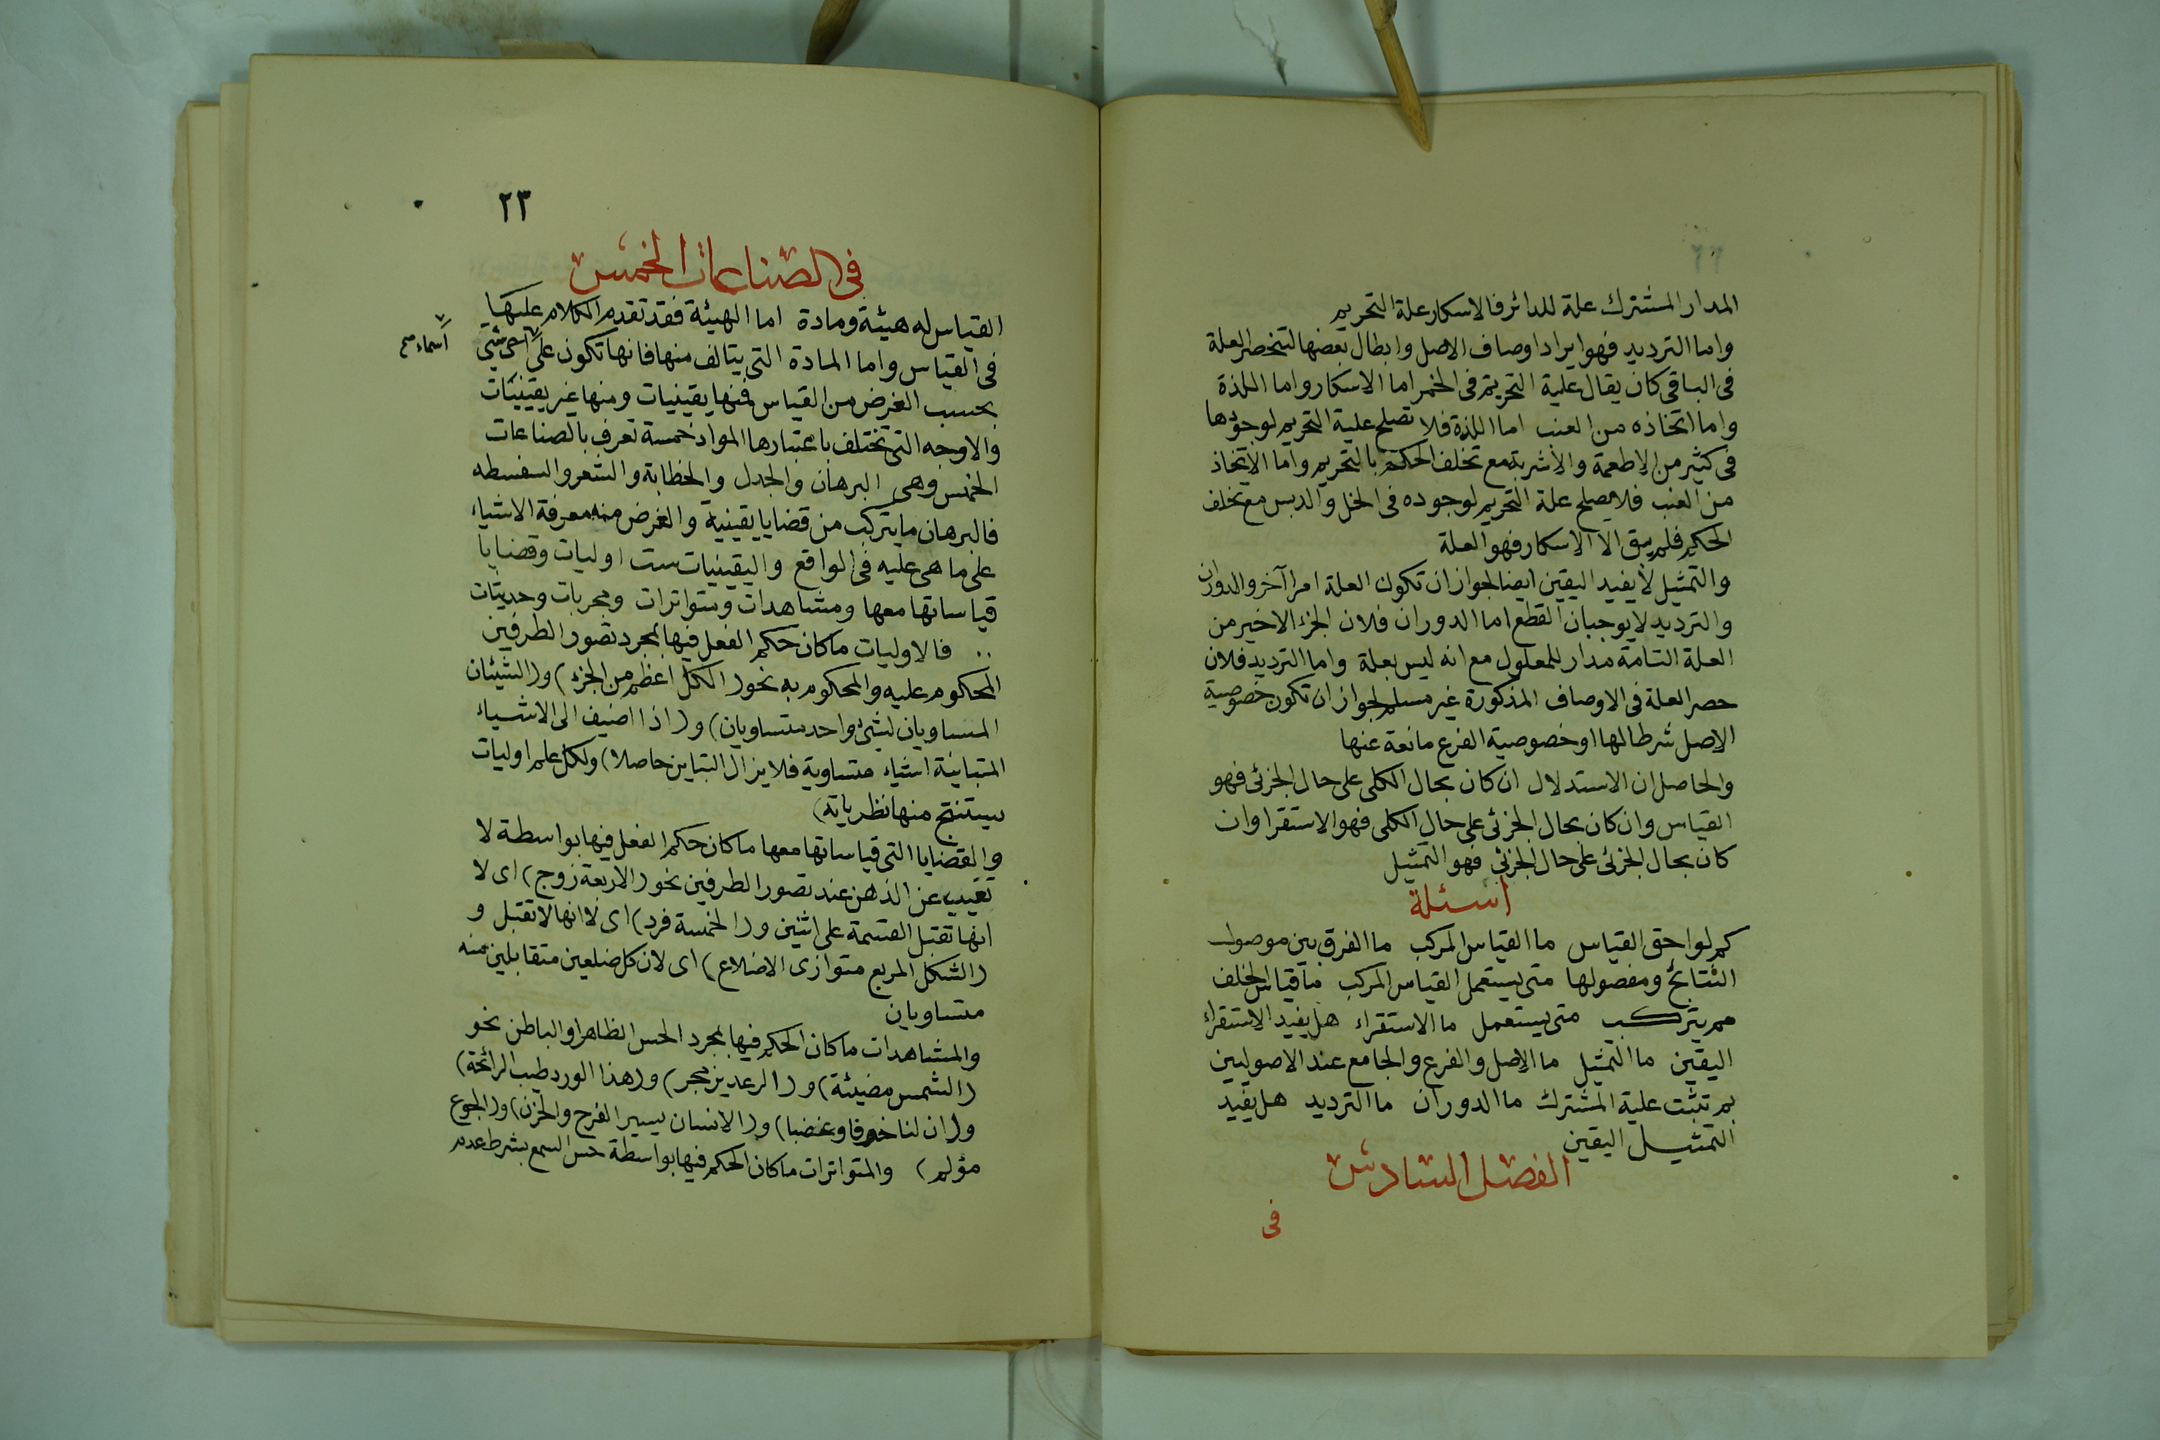 المدار المشترك علة للدائر فالاسكار علة التحريم
واما الترديد فهو ايراد اوصاف الاصل وابطال بعضها لتنحصر العلة
فى الباقى كان يقال علية التحريم فى الخمر اما الاسكار واما اللذة
واما اتخاذه من العنب اما اللذة فلا تصلح علية التحريم لوجودها
فى كثير من الاطعمة والأشربة مع تخلف الحكم بالتحريم واما الاتخاذ
من العنب فلا يصلح علة التحريم لوجوده فى الخل والدبس مع تخلف
الحكم فلم يبق الا الاسكار فهو العلة
والتمثيل لا يفيد اليقين ايضا لجواز ان تكون العلة امرا آخر والدوران
والترديد لا يوجبان القطع اما الدوران فلان الجزء الاخير من
العلة التامة مدار للمعلول مع انه ليس بعلة واما الترديد فلان
حصر العلة فى الاوصاف المذكورة غير مسلم لجواز ان تكون خصوصية
الاصل شرطا لها او خصوصية الفرع مانعة عنها
والحاصل ان الاستدلال ان كان بحال الكلى على حال الجزئى فهو
القياس وان كان بحال الجزئى على حال الكلى فهو الاستقرا وان
كان بحال الجزئى على حال الجزئى فهو التمثيل
اسئلة
كم لواحق القياس ما القياس المركب ما الفرق بين موصول
النتائج ومفصولها متى يستعمل القياس المركب ما قياس الخلف
مم يتركب متى يستعمل ما الاستقراء هل يفيد الاستقراء
اليقين ما التمثيل ما الاصل والفرع والجامع عند الاصوليين
بم تثبت علية المشترك ما الدوران ما الترديد هل يفيد
التمثيل اليقين
الفصل السادس
فى
٢٣
فى الصناعات الخمس
القياس له هيئة ومادة اما الهيئة فقد تقدم الكلام عليها
فى القياس واما المادة التى يتالف منها فانها تكون على شتى
اسماء صح
بحسب الغرض من القياس فمنها يقينيات ومنها غير يقينيات
والاوجه التى تختلف باعتبارها المواد خمسة تعرف بالصناعات
الخمس وهى البرهان والجدل والخطابة والشعر والسفسطه
فالبرهان ما يتركب من قضايا يقينية والغرض منه معرفة الاشياء
على ما هى عليه فى الواقع واليقينيات ست اوليات وقضايا
قياساتها معها ومشاهدات ومتواترات ومجربات وحدسيات
.. فالاوليات ما كان حكم الفعل فيها بمجرد تصور الطرفين
المحكوم عليه والمحكوم به نحو (الكل اعظم من الجزء) و(الشيئان
المساويان لشئ واحد متساويان) و(اذا اضيف الى الاشياء
المتباينة اشياء متساوية فلا يزال التباين حاصلا) ولكل علم اوليات
يستنتج منها نظرياته)
والقضايا التى قياساتها معها ما كان حكم الفعل فيها بواسطة لا
تغيب عن الذهن عند تصور الطرفين نحو (الاربعة زوج) اى لا
انها تقبل القسمة على اثنين و(الخمسة فرد) اى لا انها لا تقبل و
(الشكل المربع متوازى الاضلاع) اى لان كل ضلعين متقابلين منه
متساويان
والمشاهدات ما كان الحكم فيها بمجرد الحس الظاهر او الباطن نحو
(الشمس مضيئة) و(الرعد يزمجر) و(هذا الورد طيب الرائحة)
و(ان لنا خوفا وغضبا) و(الانسان يسير الفرح والحزن) و(الجوع
مؤلم) والمتواترات ما كان الحكم فيها بواسطة حس السمع بشرط عدم